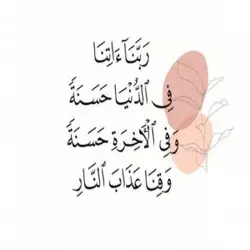 رَبَّنَآ ءَاتِنَا
فِى ٱلدُّنْيَا حَسَنَةً
وَفِى ٱلْأَخِرَةِ حَسَنَةً
وَقِنَا عَذَابَ ٱلنَّارِ